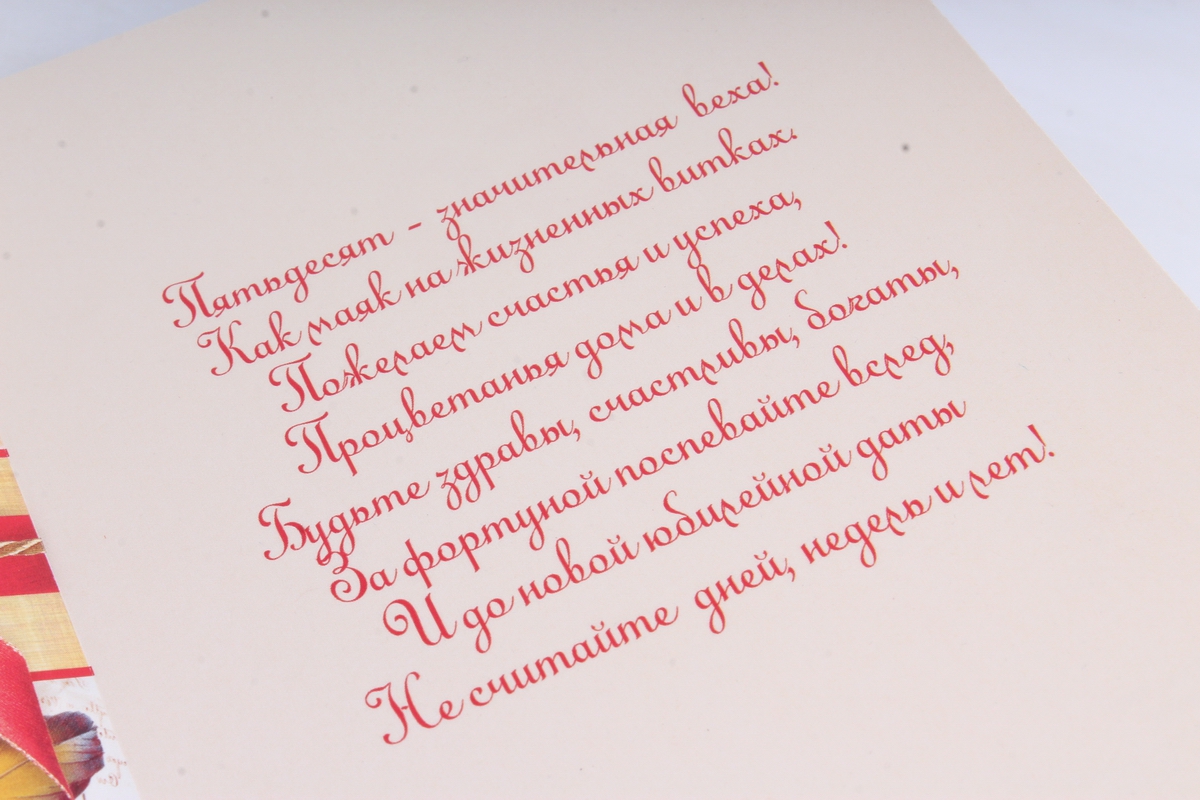 Пятьдесят - значительная веха!
Как маяк на жизненных витках.
Пожелаем счастья и успеха,
Процветанья дома и в делах!
Будьте здравы, счастливы, богаты,
За фортуной поспевайте вслед,
И до новой юбилейной даты
Не считайте дней, недель и лет!